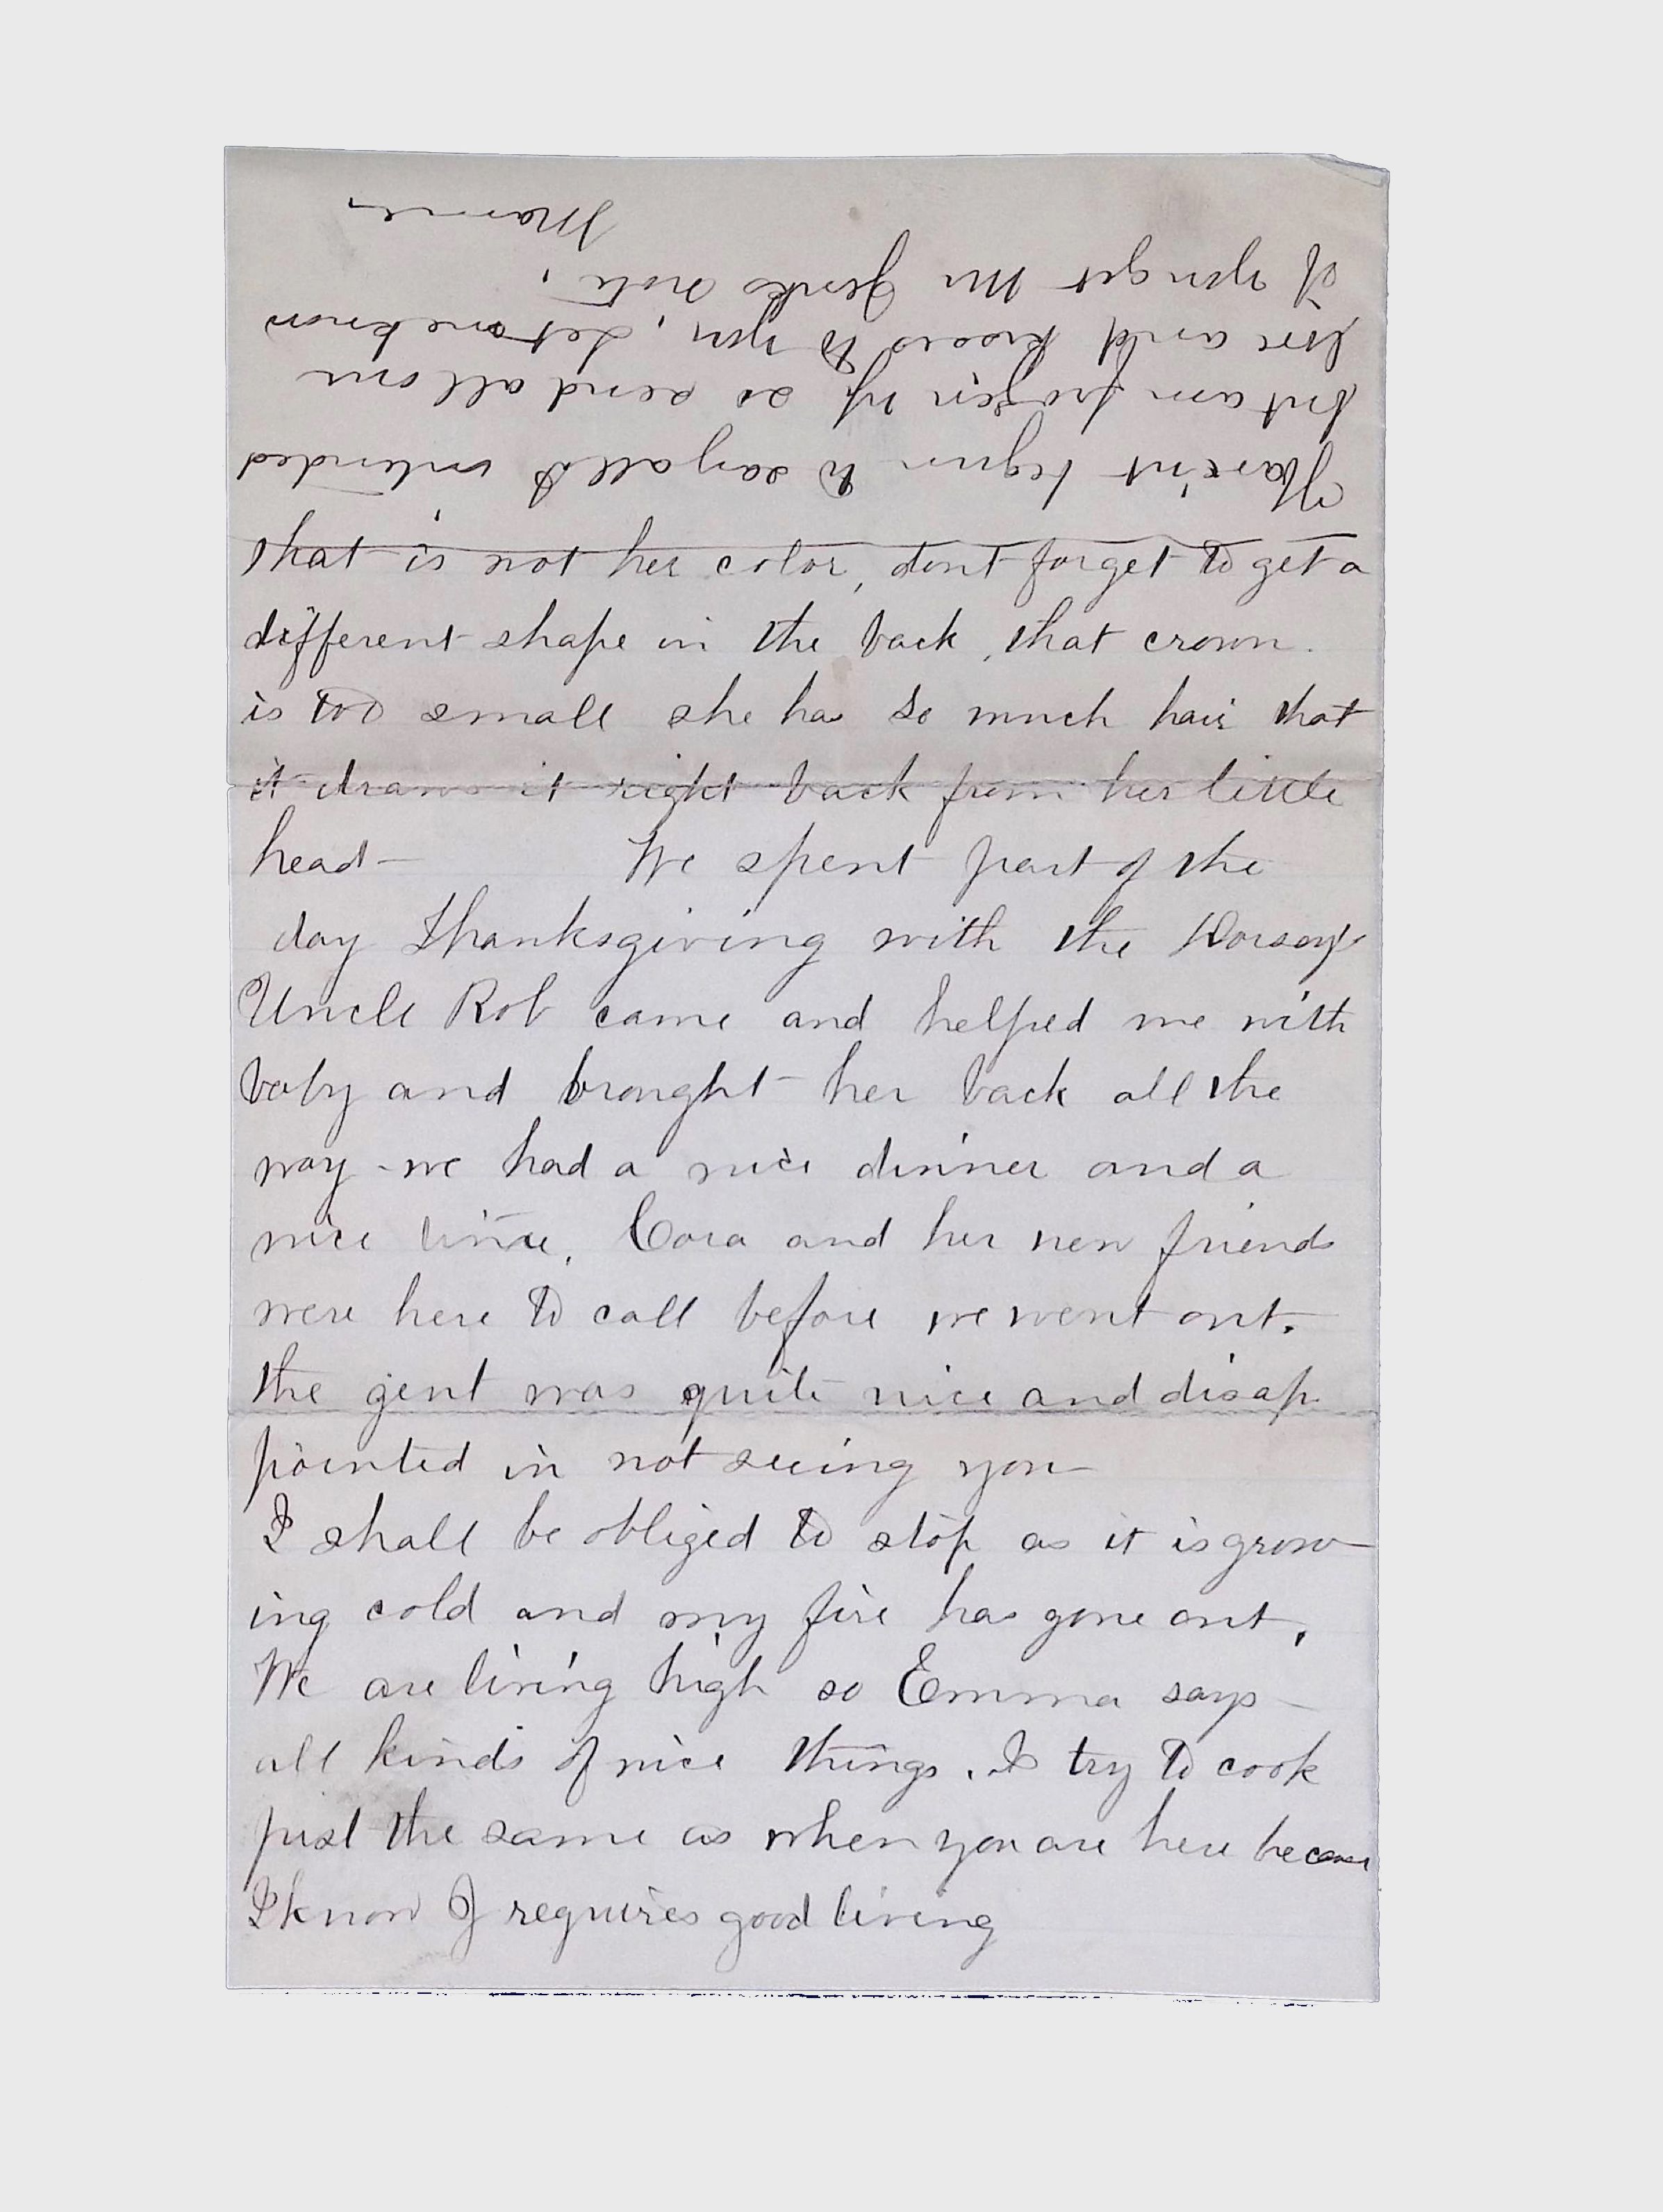 that is not her color, dont forget to get a
different shape in the back, that crown
is too small she has so much hair that
it draws it right back from her little
head— We spent part of the
day Thanksgiving with the Dorseys
Uncle Rob came and helped me with
baby and brought her back all the
way - we had a nice dinner and a
nice time. Cora and her new friends
were here to call before we went out.
the gent was quite nice and disap
pointed in not seeing you—
I shall be obliged to stop as it is grow
ing cold and my fire has gone out.
We are living high so Emma says—
all kinds of nice things. I try to cook
just the same as when you are here because
I know J requires good living
Have'nt begun to say all I intended
but am frozen up so send all our
love and kisses to you. Let me know
if you get Mr Jenks note.
Mamie